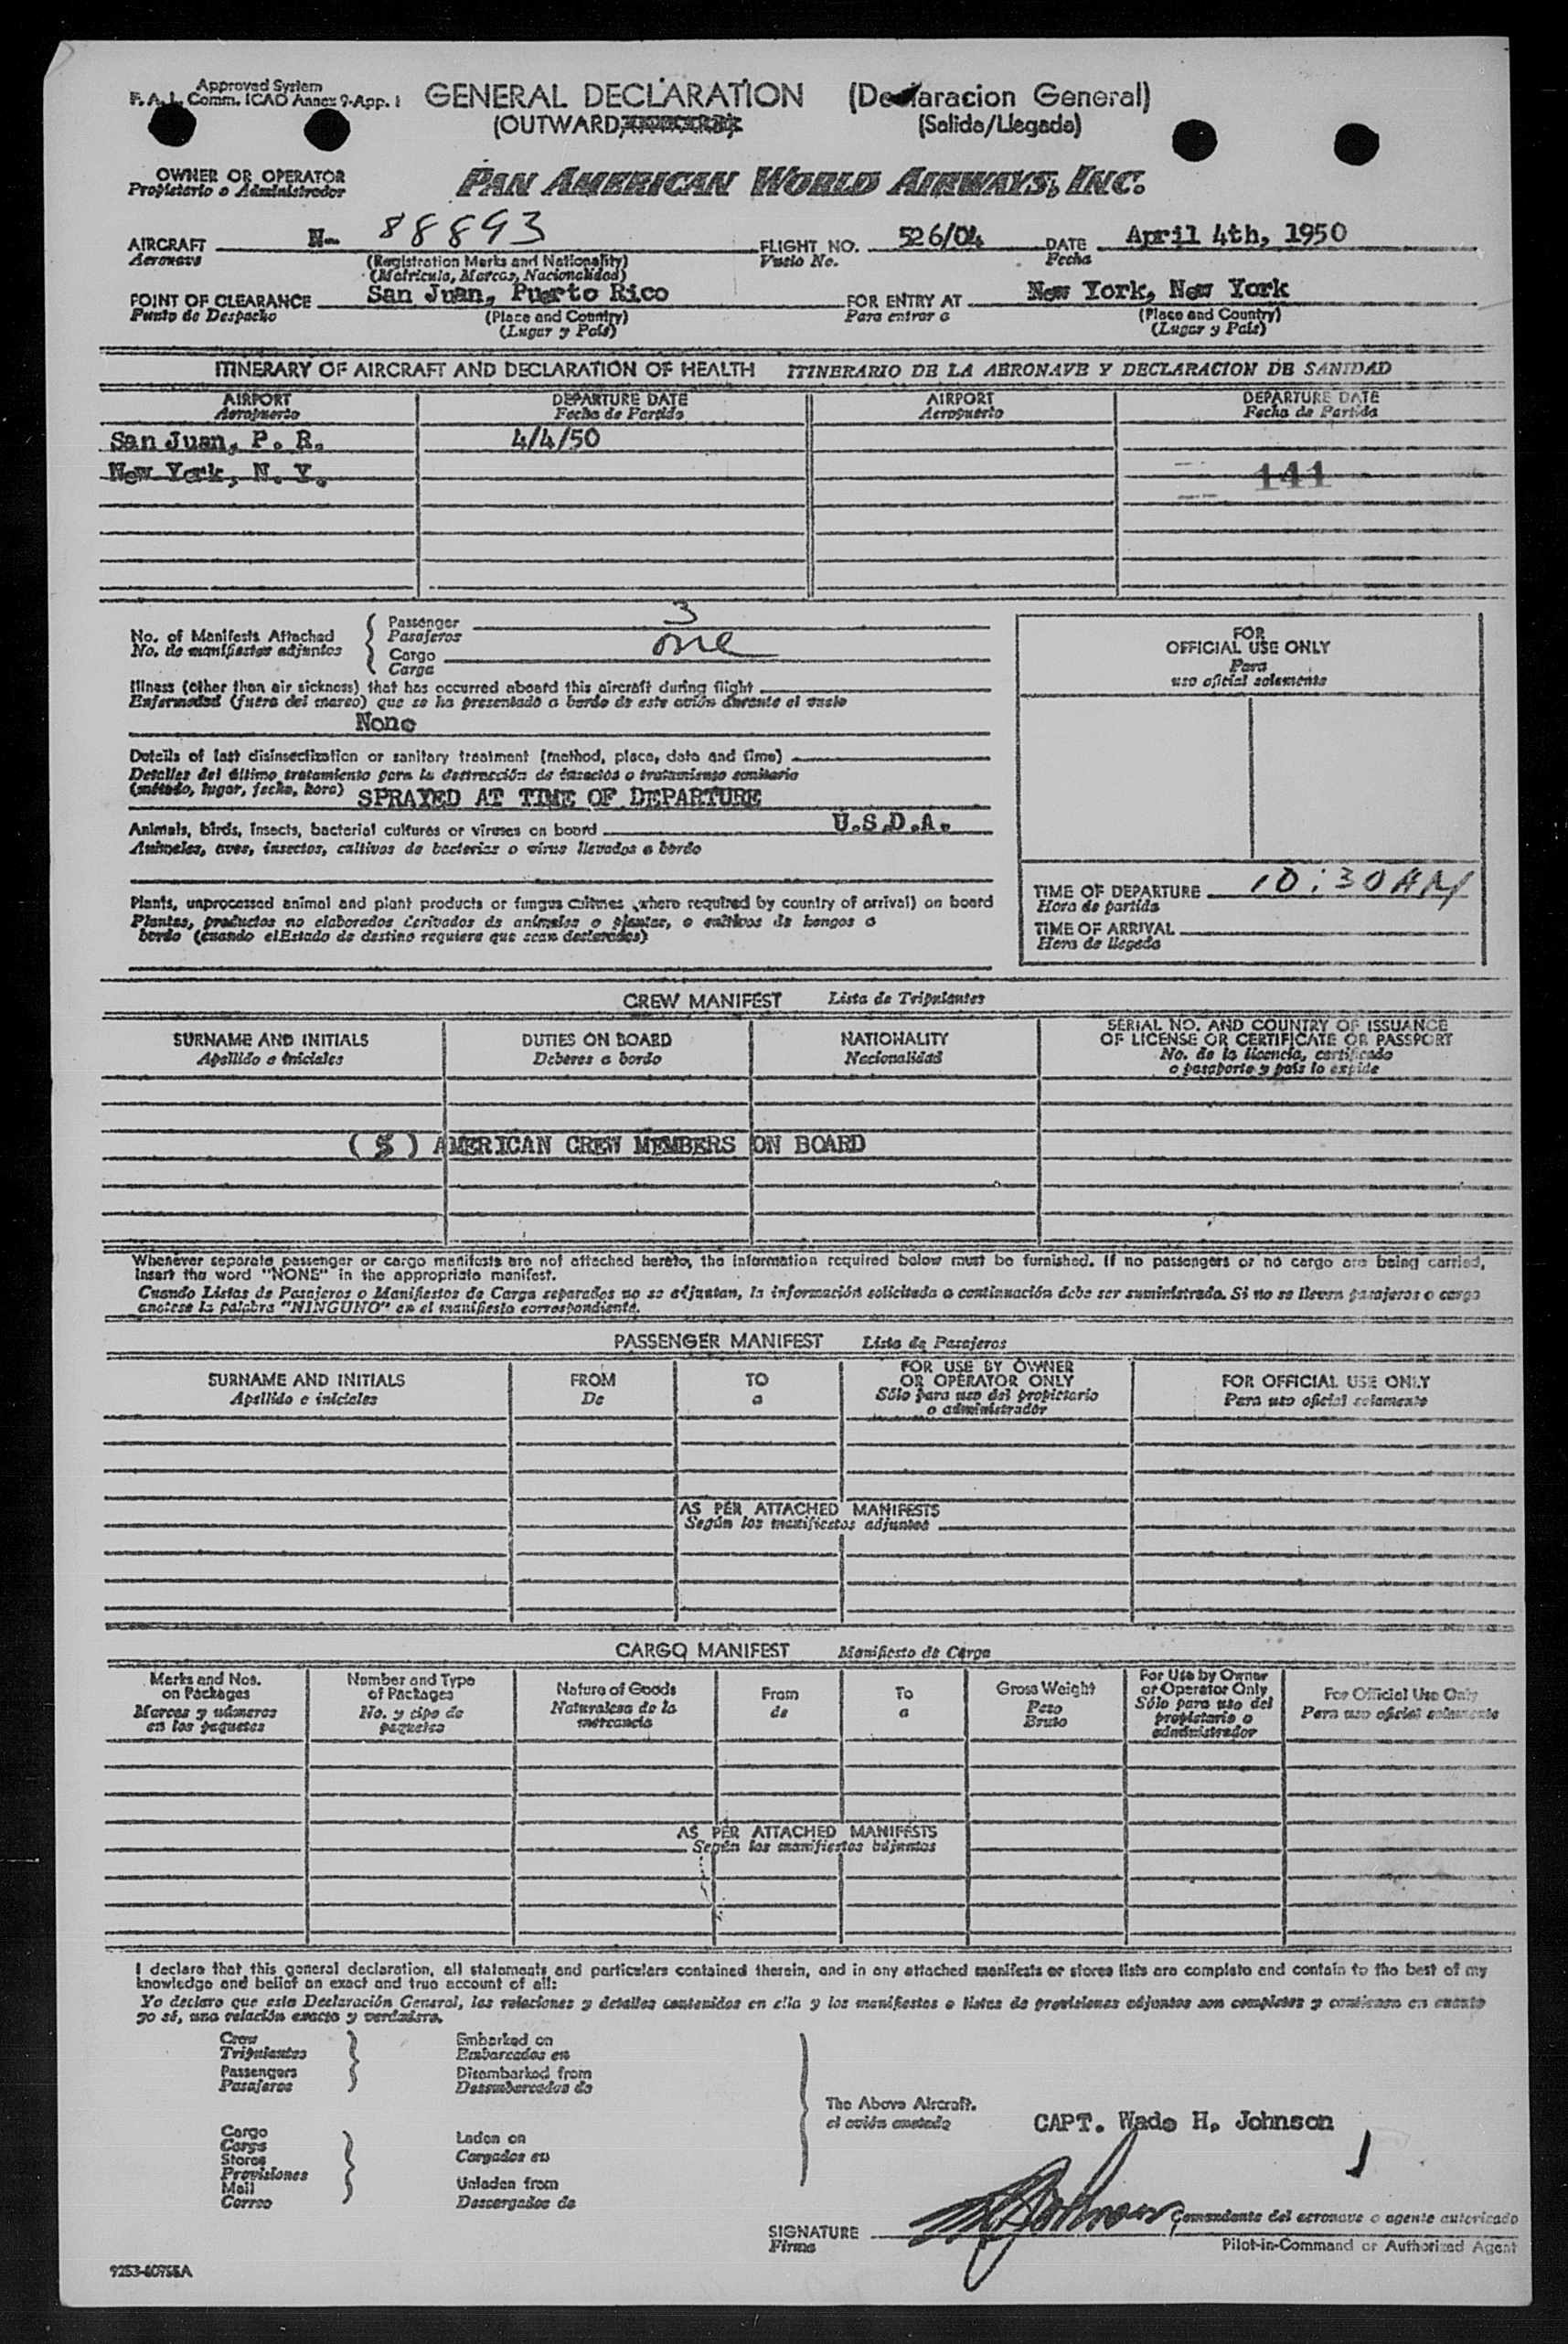 Approved System
F. A. L. Comm. ICAO Annex 9-App. 1
GENERAL DECLARATION (Declaracion General)
(OUTWARD, (Salida/Llegada)
OWNER OR OPERATOR
Propietario o Administrador
PAN AMERICAN WORLD AIRWAYS, INC.
AIRCRAFT N- 88893 FLIGHT NO. 526/04 DATE April 4th, 1950
Aeronave (Registration Marks and Nationality) Vuelo No. Fecha
(Matricula, Marcas, Nacionalidad)
POINT OF CLEARANCE San Juan, Puerto Rico FOR ENTRY AT New York, New York
Punto de Despacho (Place and Country) Para entrar a (Place and Country)
(Lugar y País) (Lugar y País)
ITINERARY OF AIRCRAFT AND DECLARATION OF HEALTH ITINERARIO DE LA AERONAVE Y DECLARACION DE SANIDAD
AIRPORT DEPARTURE DATE AIRPORT DEPARTURE DATE
Aeropuerto Fecha de Partida Aeropuerto Fecha de Partida
San Juan, P. R. 4/4/50
New York, N. Y. 141
No. of Manifests Attached
No. de manifiestos adjuntos
Passenger 3
Pasajeros
Cargo one
Carga
Illness (other than air sickness) that has occurred aboard this aircraft during flight
Enfermedad (fuera del mareo) que se ha presentado a bordo de este avión durante el vuelo
None
Details of last disinsectization or sanitary treatment (method, place, date and time)
Detalles del último tratamiento para la destrucción de insectos o tratamiento sanitario
(método, lugar, fecha, hora) SPRAYED AT TIME OF DEPARTURE
Animals, birds, insects, bacterial cultures or viruses on board U.S.D.A.
Animales, aves, insectos, cultivos de bacterias o virus llevados a bordo
Plants, unprocessed animal and plant products or fungus cultures (where required by country of arrival) on board
Plantas, productos no elaborados derivados de animales o plantas, o cultivos de hongos a
bordo (cuando el Estado de destino requiere que sean declarados)
FOR
OFFICIAL USE ONLY
Para
uso oficial solamente
TIME OF DEPARTURE 10:30 AM
Hora de partida
TIME OF ARRIVAL
Hora de llegada
CREW MANIFEST Lista de Tripulantes
SURNAME AND INITIALS DUTIES ON BOARD NATIONALITY SERIAL NO. AND COUNTRY OF ISSUANCE
OF LICENSE OR CERTIFICATE OR PASSPORT
Apellido e iniciales Deberes a bordo Nacionalidad No. de la licencia, certificado
o pasaporte y país lo expide
( 5 ) AMERICAN CREW MEMBERS ON BOARD
Whenever separate passenger or cargo manifests are not attached hereto, the information required below must be furnished. If no passengers or no cargo are being carried,
insert the word "NONE" in the appropriate manifest.
Cuando Listas de Pasajeros o Manifiestos de Carga separados no se adjuntan, la información solicitada a continuación debe ser suministrada. Si no se lleven pasajeros o carga
anotese la palabra "NINGUNO" en el manifiesto correspondiente.
PASSENGER MANIFEST Lista de Pasajeros
SURNAME AND INITIALS FROM TO FOR USE BY OWNER
OR OPERATOR ONLY FOR OFFICIAL USE ONLY
Apellido e iniciales De a Sólo para uso del propietario
o administrador Para uso oficial solamente
AS PER ATTACHED MANIFESTS
Según los manifiestos adjuntos
CARGO MANIFEST Manifiesto de Carga
Marks and Nos.
on Packages
Marcas y números
en los paquetes
Number and Type
of Packages
No. y tipo de
paquetes
Nature of Goods
Naturaleza de la
mercancía
From
de
To
a
Gross Weight
Peso
Bruto
For Use by Owner
or Operator Only
Sólo para uso del
propietario o
administrador
For Official Use Only
Para uso oficial solamente
AS PER ATTACHED MANIFESTS
Según los manifiestos adjuntos
I declare that this general declaration, all statements and particulars contained therein, and in any attached manifests or stores lists are complete and contain to the best of my
knowledge and belief an exact and true account of all:
Yo declaro que esta Declaración General, las relaciones y detalles contenidos en ella y los manifiestos o listas de provisiones adjuntos son completos y contienen en cuanto
yo sé, una relación exacta y verdadera.
Crew
Tripulantes
Passengers
Pasajeros
Embarked on
Embarcados en
Disembarked from
Desembarcados de
Cargo
Carga
Stores
Provisiones
Mail
Correo
Laden on
Cargados en
Unladen from
Descargados de
The Above Aircraft.
el avión anotado
CAPT. Wade H. Johnson
SIGNATURE
Firma
Comandante del aeronave o agente autorizado
Pilot-in-Command or Authorized Agent
9253-60755A